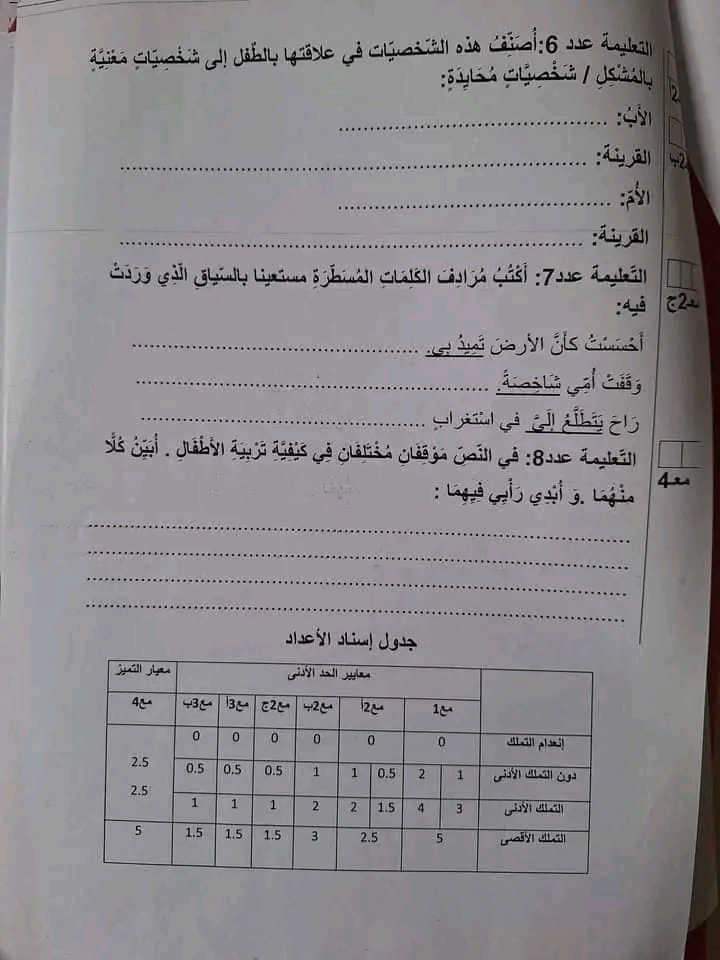 التعليمة عدد 6:أُصَنِّفُ هذه الشّخصيّات في علاقتها بالطّفل إلى شَخْصِيّاتٍ مَعْنِيَّةٍ
بالمُشْكِلِ / شَخْصِيَّاتٍ مُحَايِدَةٍ:
الأَبُ: ........................................
القرينة: ........................................
الأُمّ: ........................................
القرينة: ........................................
مع2ج
التّعليمة عدد7: أَكْتُبُ مُرَادِفَ الكَلِمَاتِ المُسَطَّرَةِ مستعينا بالسّياقِ الّذِي وَرَدَتْ
فيه:
أَحْسَسْتُ كأَنَّ الأرضَ تَمِيدُ بِي. ........................................
وَقَفَتْ أُمِّي شَاخِصَةً. ........................................
رَاحَ يَتَطَلَّعُ إلَيَّ في اسْتغرابٍ ........................................
مع4
التّعليمة عدد8: في النّصّ مَوْقِفَانِ مُخْتَلِفَانِ فِي كَيْفِيَّةِ تَرْبِيَةِ الأطْفَالِ . أُبَيِّنُ كُلًّا
منْهُمَا .وَ أُبْدِي رَأْيِي فِيهِمَا :
........................................
........................................
........................................
........................................
جدول إسناد الأعداد
معايير الحد الأدنى معيار التميز
مع1 مع2أ مع2ب مع2ج مع3أ مع3ب مع4
إنعدام التملك 0 0 0 0 0 0
دون التملك الأدنى 1 2 0.5 1 1 0.5 0.5 0.5 2.5
التملك الأدنى 3 4 1.5 2 2 1 1 1 2.5
التملك الأقصى 5 2.5 3 1.5 1.5 1.5 5